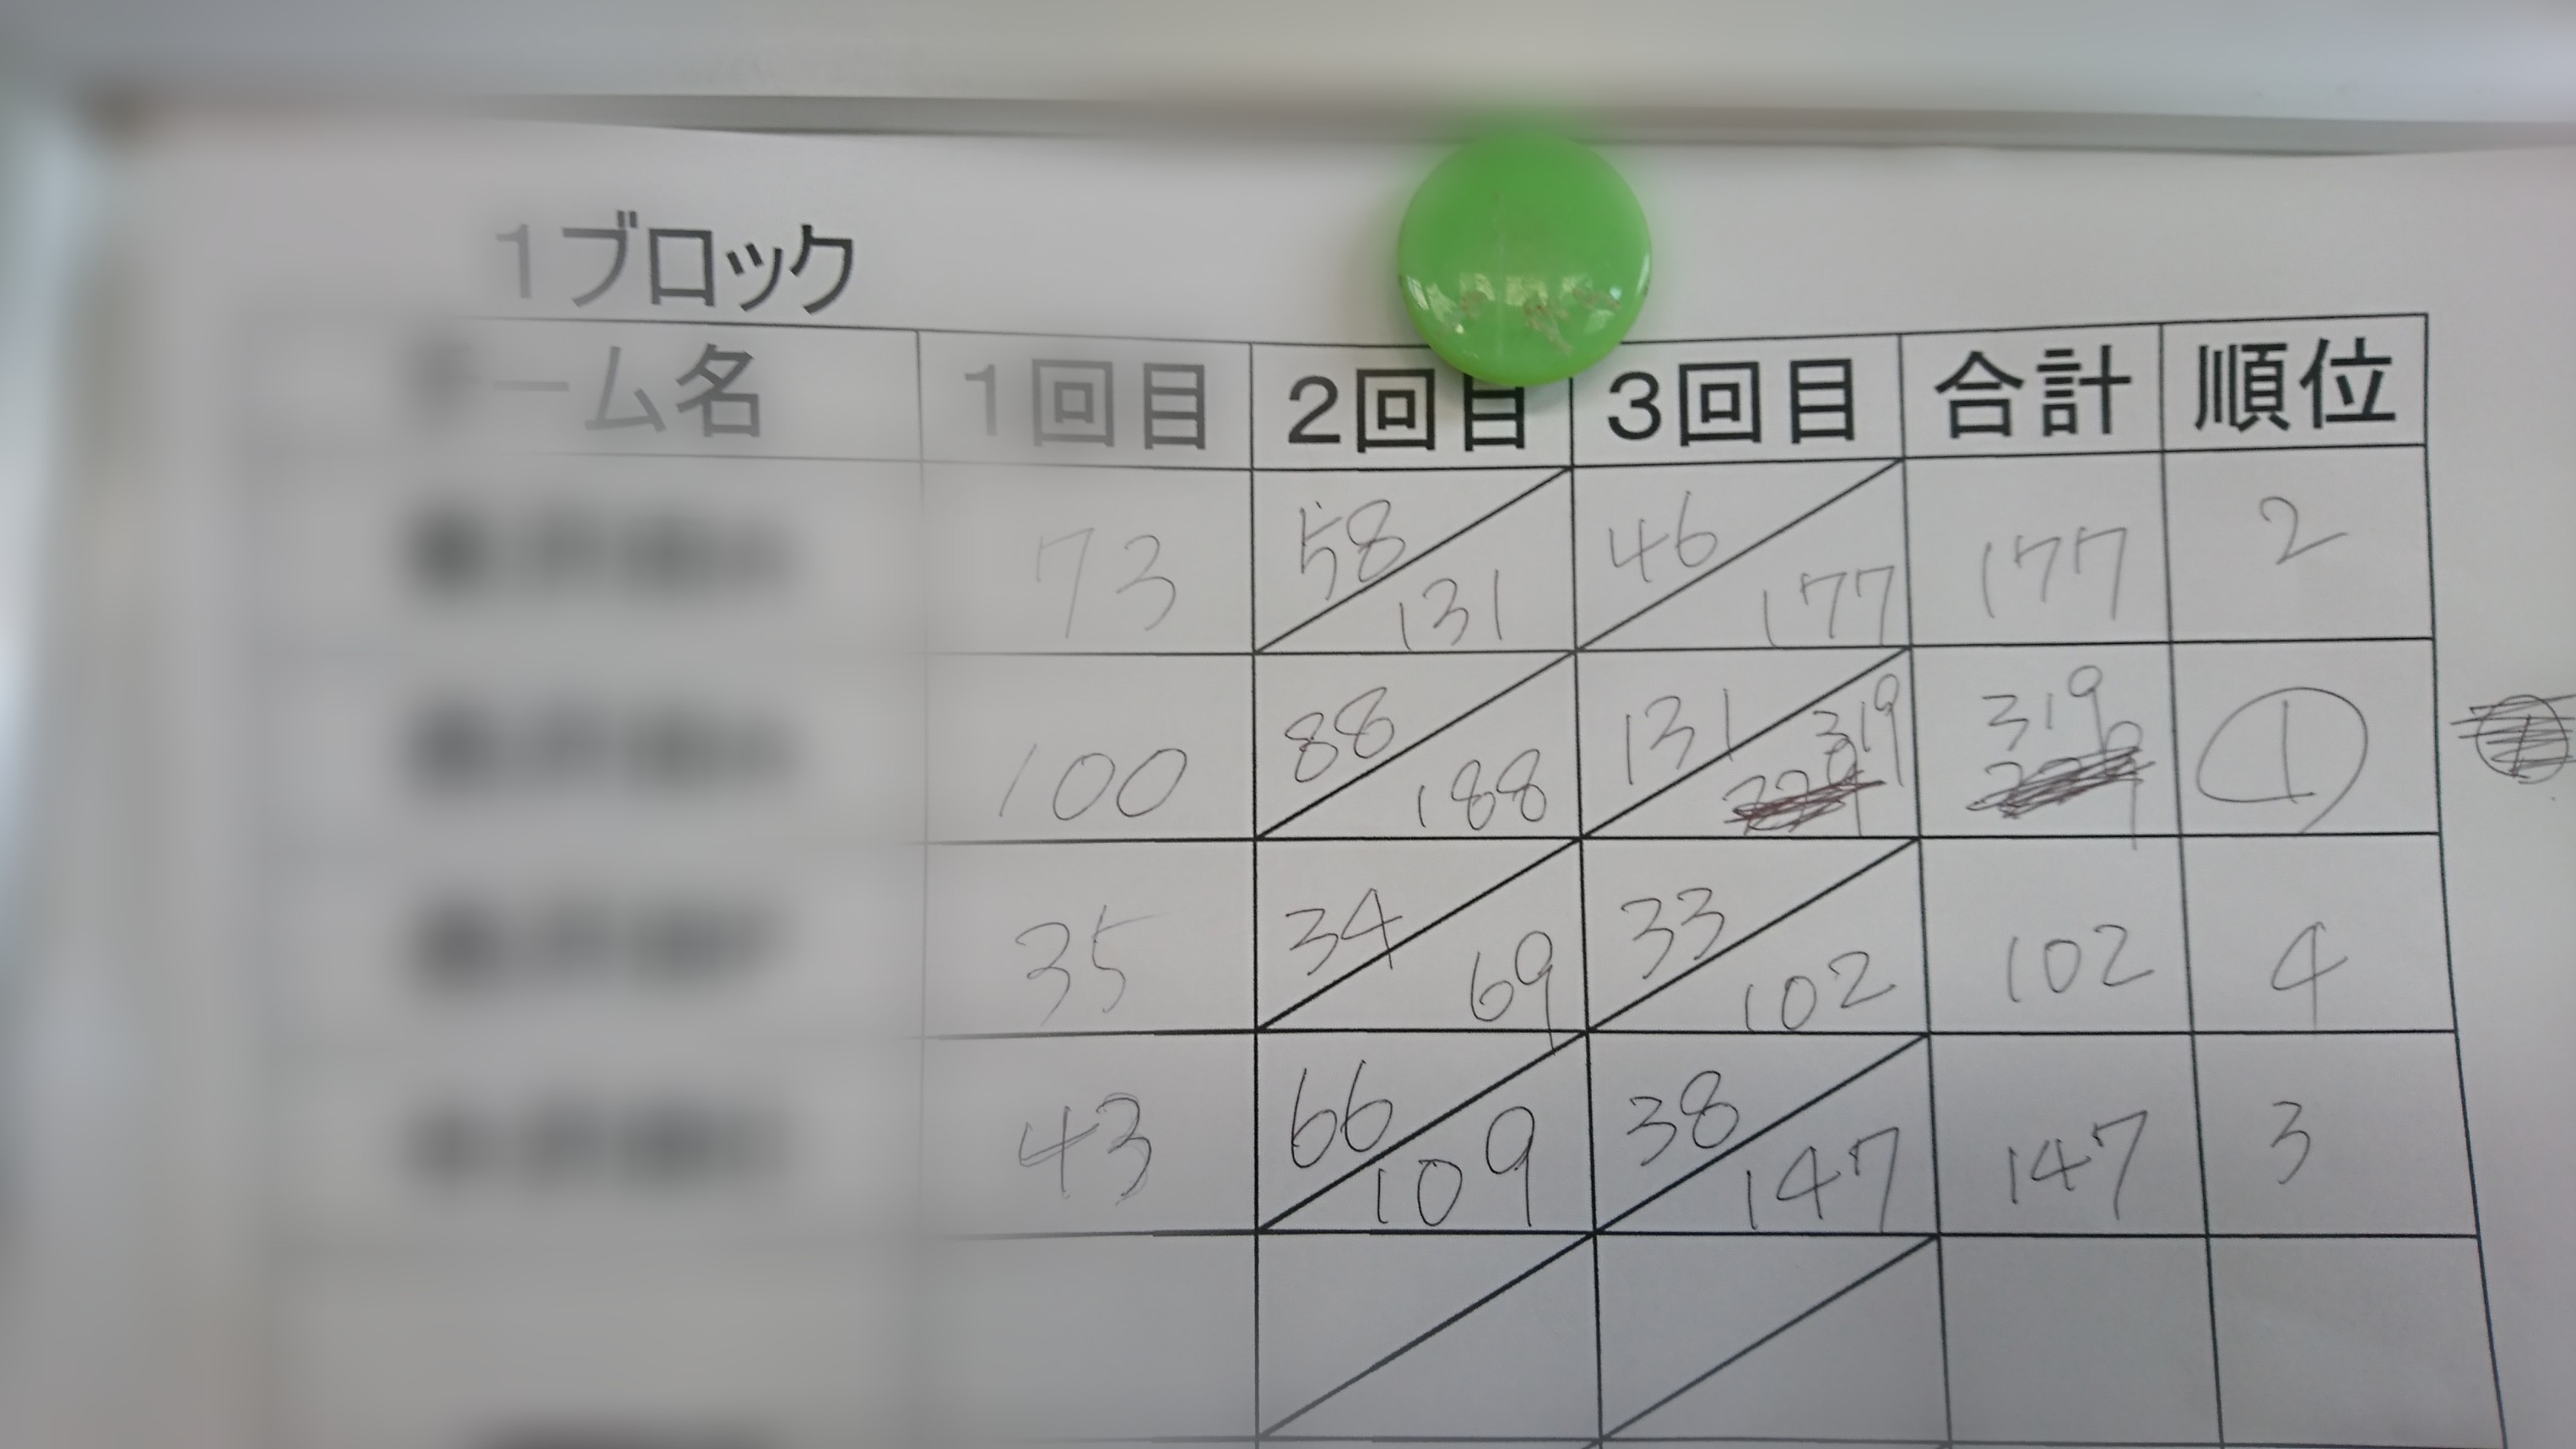 1ブロック
チーム名 1回目 2回目 3回目 合計 順位
73 58 131 46 177 177 2
100 88 188 131 319 319 ①
35 34 69 33 102 102 4
43 66 109 38 147 147 3